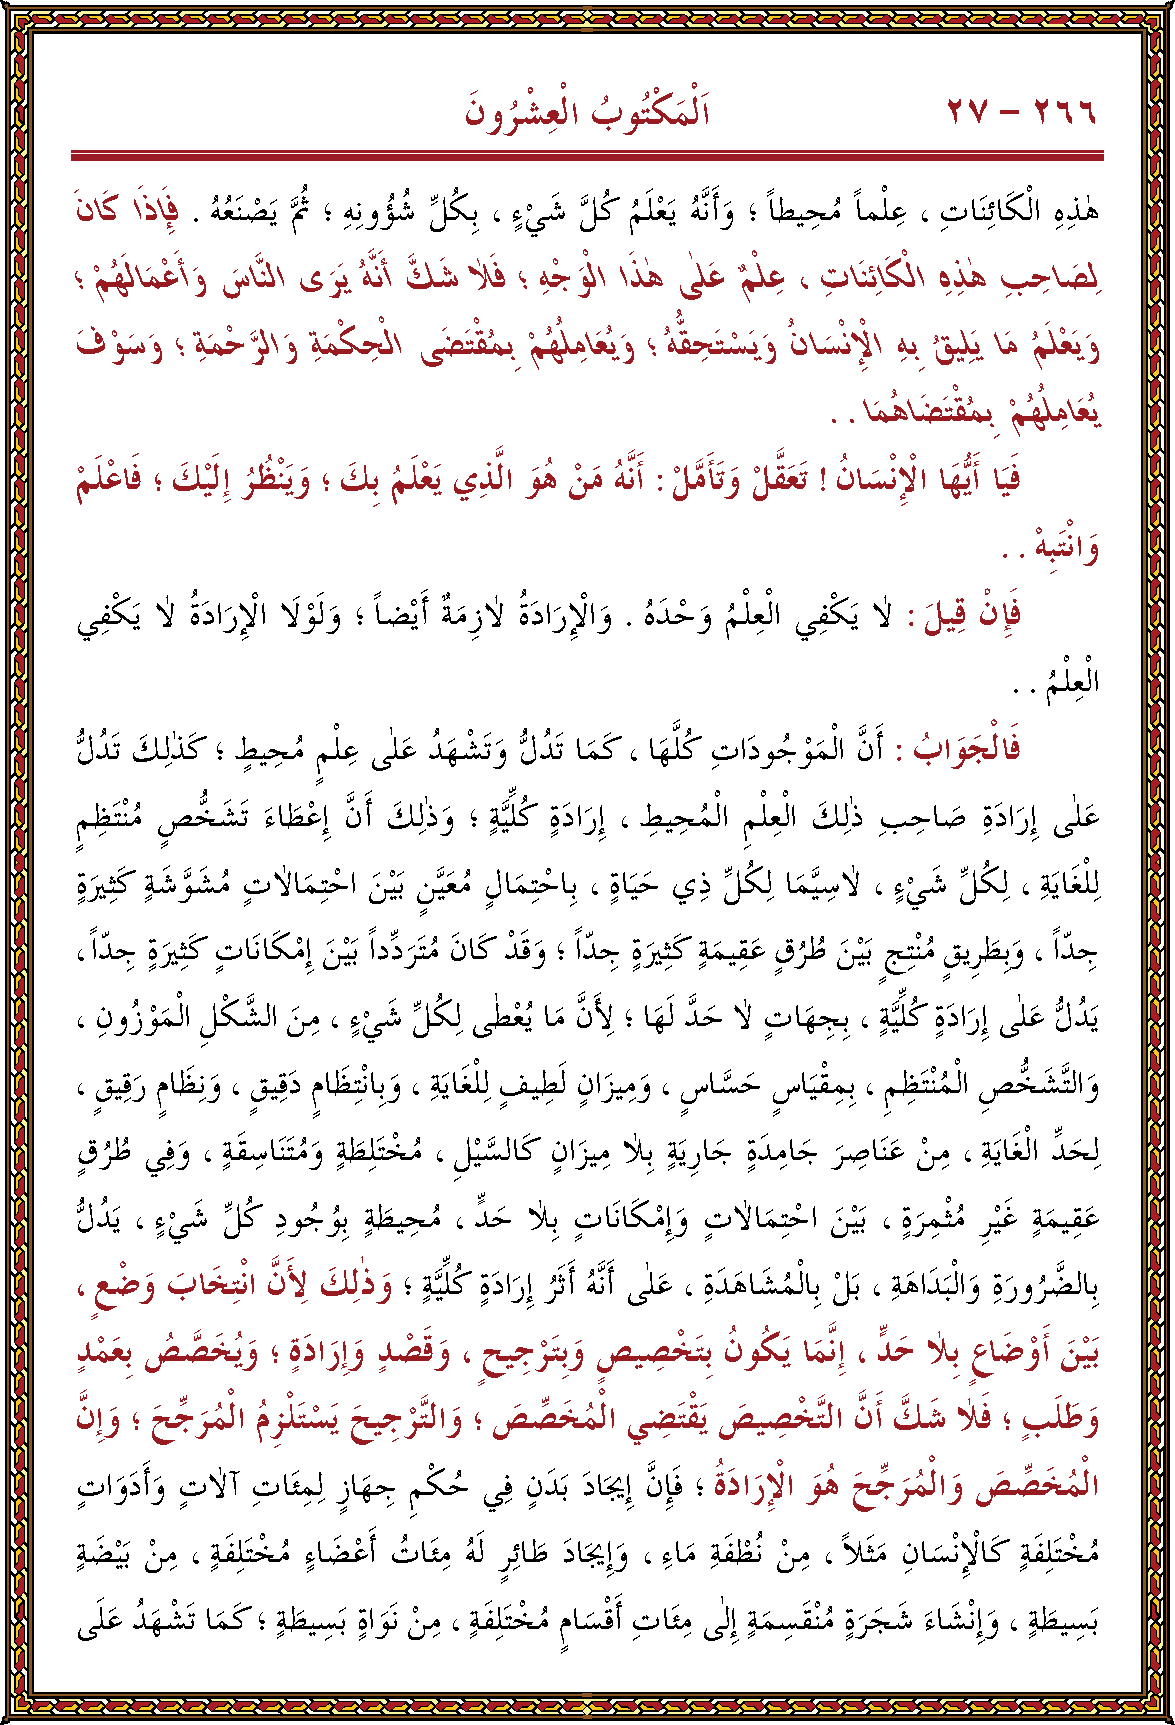 ٢٦٦ – ٢٧ اَلْمَكْتُوبُ الْعِشْرُونَ
هٰذِهِ الْكَائِنَاتِ ، عِلْماً مُحِيطاً ؛ وَأَنَّهُ يَعْلَمُ كُلَّ شَيْءٍ ، بِكُلِّ شُؤُونِهِ ؛ ثُمَّ يَصْنَعُهُ . فَإِذَا كَانَ
لِصَاحِبِ هٰذِهِ الْكَائِنَاتِ ، عِلْمٌ عَلٰى هٰذَا الْوَجْهِ ؛ فَلَا شَكَّ أَنَّهُ يَرَى النَّاسَ وَأَعْمَالَهُمْ ؛
وَيَعْلَمُ مَا يَلِيقُ بِهِ الْإِنْسَانُ وَيَسْتَحِقُّهُ ؛ وَيُعَامِلُهُمْ بِمُقْتَضَى الْحِكْمَةِ وَالرَّحْمَةِ ؛ وَسَوْفَ
يُعَامِلُهُمْ بِمُقْتَضَاهُمَا . .
فَيَا أَيُّهَا الْإِنْسَانُ ! تَعَقَّلْ وَتَأَمَّلْ : أَنَّهُ مَنْ هُوَ الَّذِي يَعْلَمُ بِكَ ؛ وَيَنْظُرُ إِلَيْكَ ؛ فَاعْلَمْ
وَانْتَبِهْ . .
فَإِنْ قِيلَ : لَا يَكْفِي الْعِلْمُ وَحْدَهُ . وَالْإِرَادَةُ لَازِمَةٌ أَيْضاً ؛ وَلَوْلَا الْإِرَادَةُ لَا يَكْفِي
الْعِلْمُ . .
فَالْجَوَابُ : أَنَّ الْمَوْجُودَاتِ كُلَّهَا ، كَمَا تَدُلُّ وَتَشْهَدُ عَلٰى عِلْمٍ مُحِيطٍ ؛ كَذٰلِكَ تَدُلُّ
عَلٰى إِرَادَةِ صَاحِبِ ذٰلِكَ الْعِلْمِ الْمُحِيطِ ، إِرَادَةٍ كُلِّيَّةٍ ؛ وَذٰلِكَ أَنَّ إِعْطَاءَ تَشَخُّصٍ مُنْتَظِمٍ
لِلْغَايَةِ ، لِكُلِّ شَيْءٍ ، لَاسِيَّمَا لِكُلِّ ذِي حَيَاةٍ ، بِاحْتِمَالٍ مُعَيَّنٍ بَيْنَ احْتِمَالَاتٍ مُشَوَّشَةٍ كَثِيرَةٍ
جِدّاً ، وَبِطَرِيقٍ مُنْتِجٍ بَيْنَ طُرُقٍ عَقِيمَةٍ كَثِيرَةٍ جِدّاً ؛ وَقَدْ كَانَ مُتَرَدِّداً بَيْنَ إِمْكَانَاتٍ كَثِيرَةٍ جِدّاً ،
يَدُلُّ عَلٰى إِرَادَةٍ كُلِّيَّةٍ ، بِجِهَاتٍ لَا حَدَّ لَهَا ؛ لِأَنَّ مَا يُعْطٰى لِكُلِّ شَيْءٍ ، مِنَ الشَّكْلِ الْمَوْزُونِ ،
وَالتَّشَخُّصِ الْمُنْتَظِمِ ، بِمِقْيَاسٍ حَسَّاسٍ ، وَمِيزَانٍ لَطِيفٍ لِلْغَايَةِ ، وَبِانْتِظَامٍ دَقِيقٍ ، وَنِظَامٍ رَقِيقٍ ،
لِحَدِّ الْغَايَةِ ، مِنْ عَنَاصِرَ جَامِدَةٍ جَارِيَةٍ بِلَا مِيزَانٍ كَالسَّيْلِ ، مُخْتَلِطَةٍ وَمُتَنَاسِقَةٍ ، وَفِي طُرُقٍ
عَقِيمَةٍ غَيْرِ مُثْمِرَةٍ ، بَيْنَ احْتِمَالَاتٍ وَإِمْكَانَاتٍ بِلَا حَدٍّ ، مُحِيطَةٍ بِوُجُودِ كُلِّ شَيْءٍ ، يَدُلُّ
بِالضَّرُورَةِ وَالْبَدَاهَةِ ، بَلْ بِالْمُشَاهَدَةِ ، عَلٰى أَنَّهُ أَثَرُ إِرَادَةٍ كُلِّيَّةٍ ؛ وَذٰلِكَ لِأَنَّ انْتِخَابَ وَضْعٍ ،
بَيْنَ أَوْضَاعٍ بِلَا حَدٍّ ، إِنَّمَا يَكُونُ بِتَخْصِيصٍ وَبِتَرْجِيحٍ ، وَقَصْدٍ وَإِرَادَةٍ ؛ وَيُخَصَّصُ بِعَمْدٍ
وَطَلَبٍ ؛ فَلَا شَكَّ أَنَّ التَّخْصِيصَ يَقْتَضِي الْمُخَصِّصَ ؛ وَالتَّرْجِيحَ يَسْتَلْزِمُ الْمُرَجِّحَ ؛ وَإِنَّ
الْمُخَصِّصَ وَالْمُرَجِّحَ هُوَ الْإِرَادَةُ ؛ فَإِنَّ إِيجَادَ بَدَنٍ فِي حُكْمِ جِهَازٍ لِمِئَاتِ آلَاتٍ وَأَدَوَاتٍ
مُخْتَلِفَةٍ كَالْإِنْسَانِ مَثَلًا ، مِنْ نُطْفَةِ مَاءٍ ، وَإِيجَادَ طَائِرٍ لَهُ مِئَاتُ أَعْضَاءٍ مُخْتَلِفَةٍ ، مِنْ بَيْضَةٍ
بَسِيطَةٍ ، وَإِنْشَاءَ شَجَرَةٍ مُنْقَسِمَةٍ إِلٰى مِئَاتِ أَقْسَامٍ مُخْتَلِفَةٍ ، مِنْ نَوَاةٍ بَسِيطَةٍ ؛ كَمَا تَشْهَدُ عَلَى